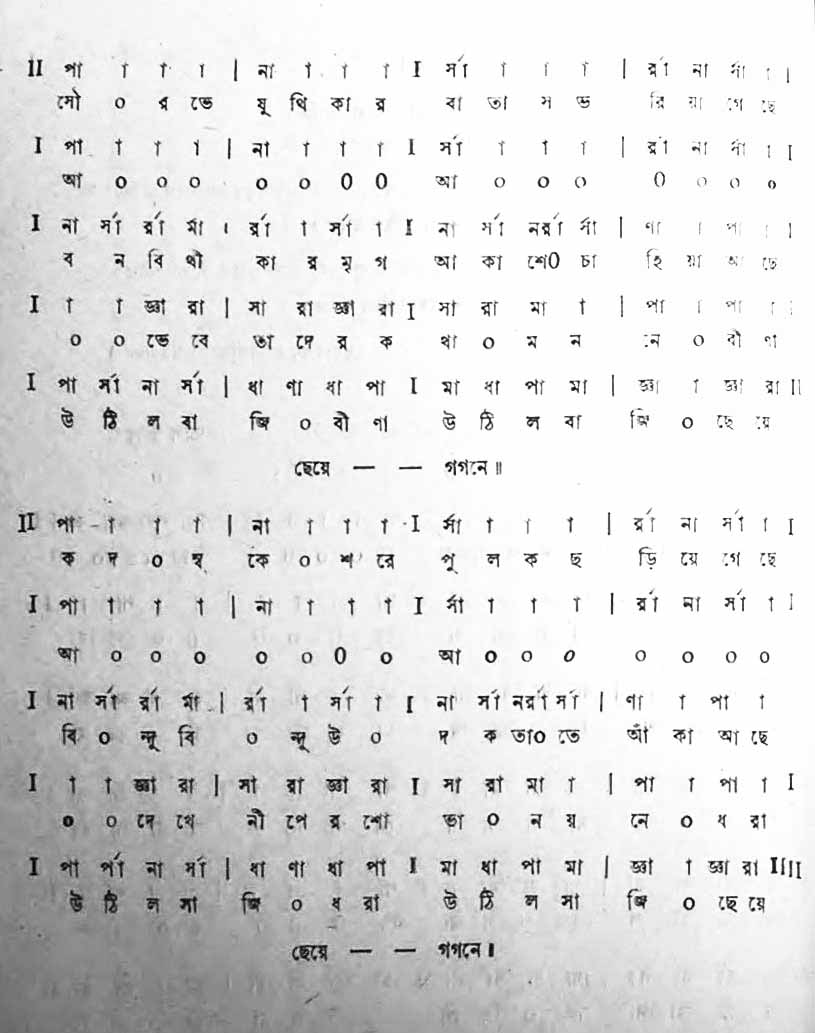 II পা া া া | না া া া I র্সা া া া | র্রা না র্সা া I
সৌ ০ র ভে যূ থি কা র বা তা স ভ রি য়া গে ছে
I পা া া া | না া া া I র্সা া া া | র্রা না র্সা া I
আ ০ ০ ০ ০ ০ ০ ০ আ ০ ০ ০ ০ ০ ০ ০
I না র্সা র্রা র্মা । র্রা া র্সা া I না র্সা নর্রা র্সা | ণা া পা া I
ব ন বি থী কা র মৃ গ আ কা শে০ চা হি য়া আ ছে
I া া জ্ঞা রা | সা রা জ্ঞা রা I সা রা মা া | পা া পা া I
০ ০ ভে বে তা দে র ক থা ০ ম ন নে ০ বী ণা
I পা র্সা না র্সা | ধা ণা ধা পা I মা ধা পা মা | জ্ঞা া জ্ঞা রা II
উ ঠি ল বা জি ০ বী ণা উ ঠি ল বা জি ০ ছে য়ে
ছেয়ে — — গগনে॥
II পা া া া | না া া া I র্সা া া া | র্রা না র্সা া I
ক দ ০ ম্ব কে ০ শ রে পু ল ক ছ ড়ি য়ে গে ছে
I পা া া া | না া া া I র্সা া া া | র্রা না র্সা া I
আ ০ ০ ০ ০ ০ ০ ০ আ ০ ০ ০ ০ ০ ০ ০
I না র্সা র্রা র্মা | র্রা া র্সা া I না র্সা নর্রা র্সা | ণা া পা া
বি ০ ন্দু বি ০ ন্দু উ ০ দ ক তা০ তে আঁ কা আ ছে
I া া জ্ঞা রা | সা রা জ্ঞা রা I সা রা মা া | পা া পা া I
০ ০ দে খে নী পে র শো ভা ০ ন য় নে ০ ধ রা
I পা র্পা না র্সা | ধা ণা ধা পা I মা ধা পা মা | জ্ঞা া জ্ঞা রা IIII
উ ঠি ল সা জি ০ ধ রা উ ঠি ল সা জি ০ ছে য়ে
ছেয়ে — — গগনে।